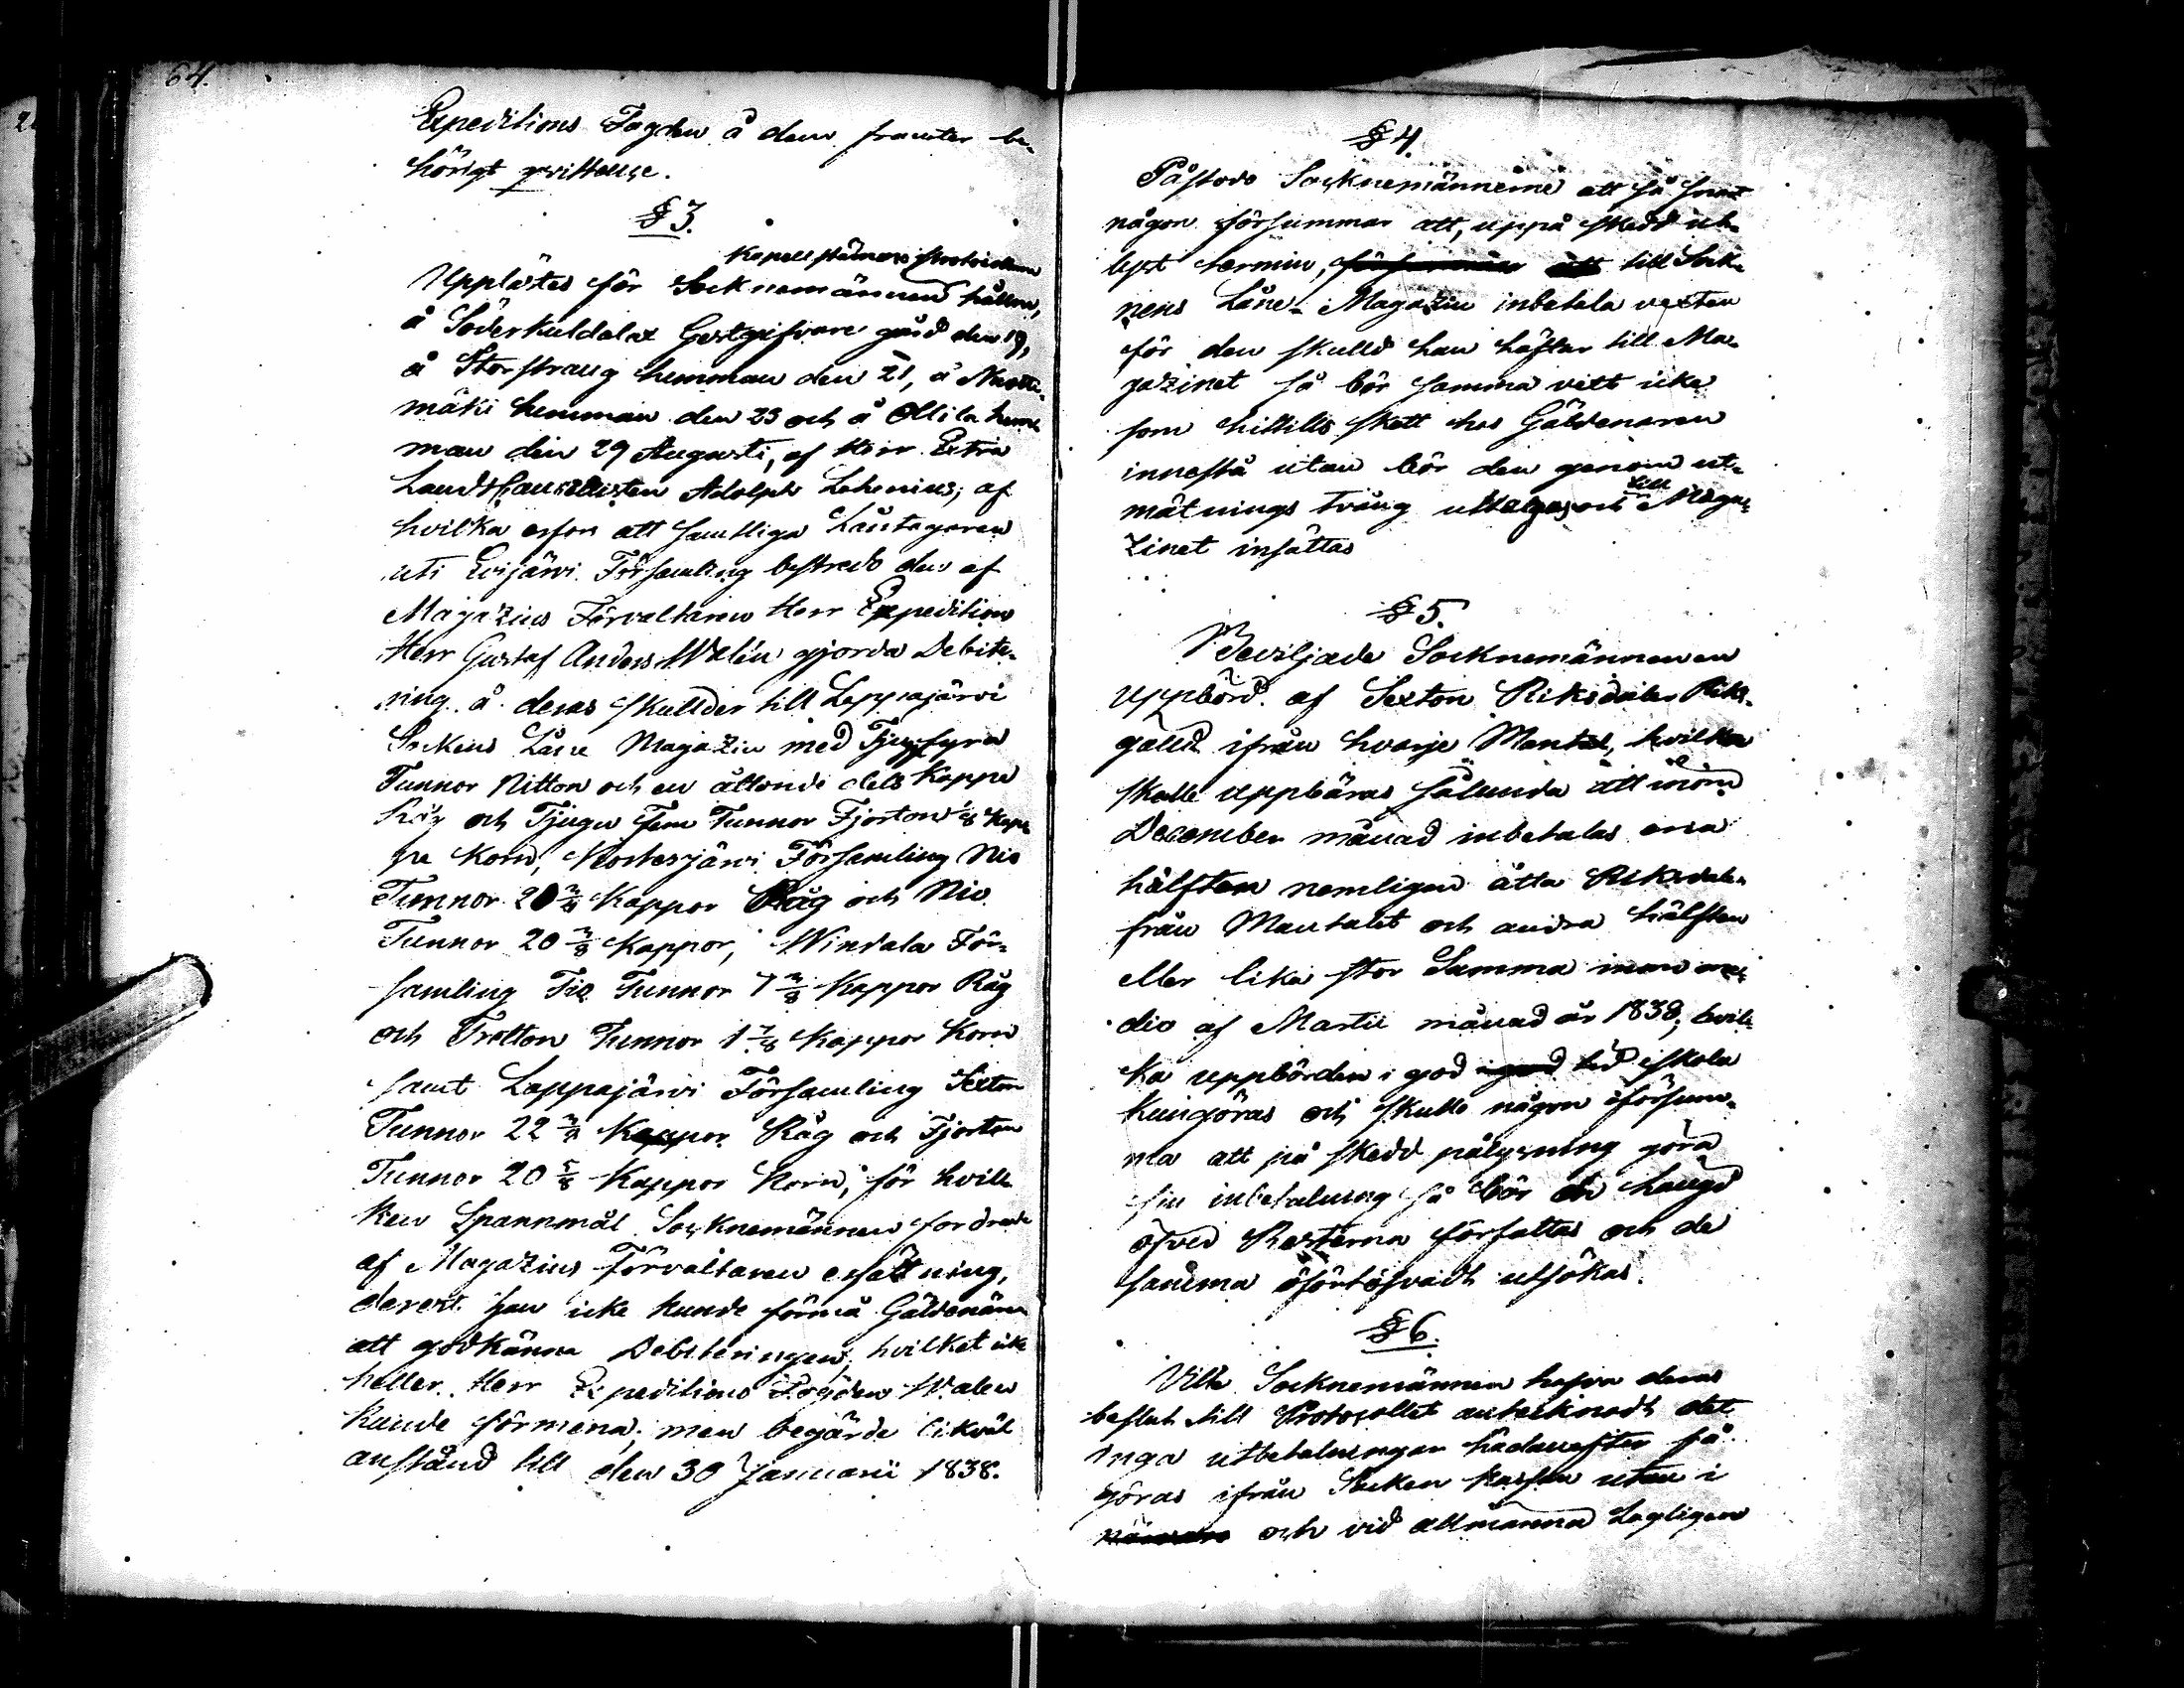 64.
Expeditions Fogden å dem framter be-
hörigt qvittence.
§ 3.
Kapell stämmo protocollerne
Upplästes för Socknemännen hållne,
å Söderkuldalax Gästgifvare gård den 19,
å Storstrang hemman den 21, å
mäki hemman den 23 och å Ollila hem-
man den 29 Augusti, af Herr Extra
Landt Cancellisten Adolph Lihenius; af
hvilka erfors att samtliga Låntagaren
uti Evijärvi Församling bestredo den af
Magazins Förvaltaren Herr Expeditions
Herr Gustaf Anders Walin gjorda Debite-
ring å deras skullder till Lappajärvi
Sockens Låne Magazin med Tjugufyra
Tunnor Nitton och en åttonde dels Kappe
Råg och Tjugu fem Tunnor Fjorton 1/8 Kap-
pe Korn, Kortesjärvi Församling Nio
Tunnor 20 3/8 Kappor Råg och Nio
Tunnor 20 3/8 Kappor, Windala För-
samling Tio Tunnor 7 3/8 Kappor Råg
och Tretton Tunnor 1 7/8 Kappor Korn
samt Lappajärvi Församling Sexton
Tunnor 22 3/8 Kappor Råg och Fjorton
Tunnor 20 5/8 Kappor Korn, för hvil-
ken Spannmål Socknemännen fordrade
af Magazins Förvaltaren ersättning,
derest han icke kunde förmå Gäldenären
att godkänna Debiteringen, hvilket icke
heller Herr Expeditions Fogden Walen
kunde förmena, men begärde likväl
anstånd till den 30 Januarii 1838.
§ 4.
Påstodo Socknemännerne att så snart
någon försummar att, uppå skedd ut-
lyst termin, till Sock-
nens Låne-Magazin inbetala vexten
för den skulld han häftar till Ma-
gazinet så bör samma vext icke
som hittills skett hos Gäldenaren
innestå utan bör den genom ut-
mätnings tvång uttagas och till Maga-
zinet insättas
§ 5.
Beviljade Socknemännen en
uppbörd af Sexton Riksdaler Riks-
gälld ifrån hvarje Mantal, hvilka
skulle uppbäras sålunda att inom
December månad inbetalas ena
hälften nemligen åtta Riksdaler
från Mantalet och andra hälften
eller lika stor Summa inom me-
dio af Martii månad år 1838, hvil-
ka uppbörden i god tid skola
kungöras och skulle någon försum-
ma att på skedd pålysning göra
sin inbetalning så bör en längd
öfver Resterna författas och de
samma oförtöfvadt utsökas.
§ 6.
Ville Socknemännen hafva deras
beslut till Protocollet antecknadt det
inga utbetalningar hädanefter få
göras ifrån Socken kassan utan i
och vid allmänna Lagligen